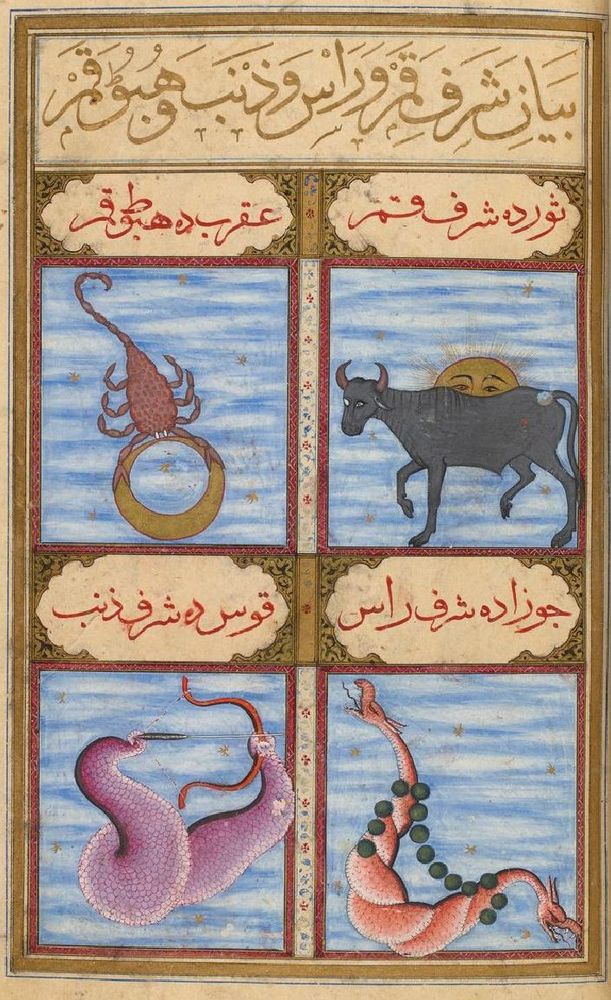 بيانِ شَرَفِ قَمَرْ وَ رَاْس وَ ذَنَبْ وَ هُبُوُطِ قَمَرْ
ثورده شرف قمر
عقرب ده هبوط قمر
جوزاده شرف راس
قوس ده شرف ذنب